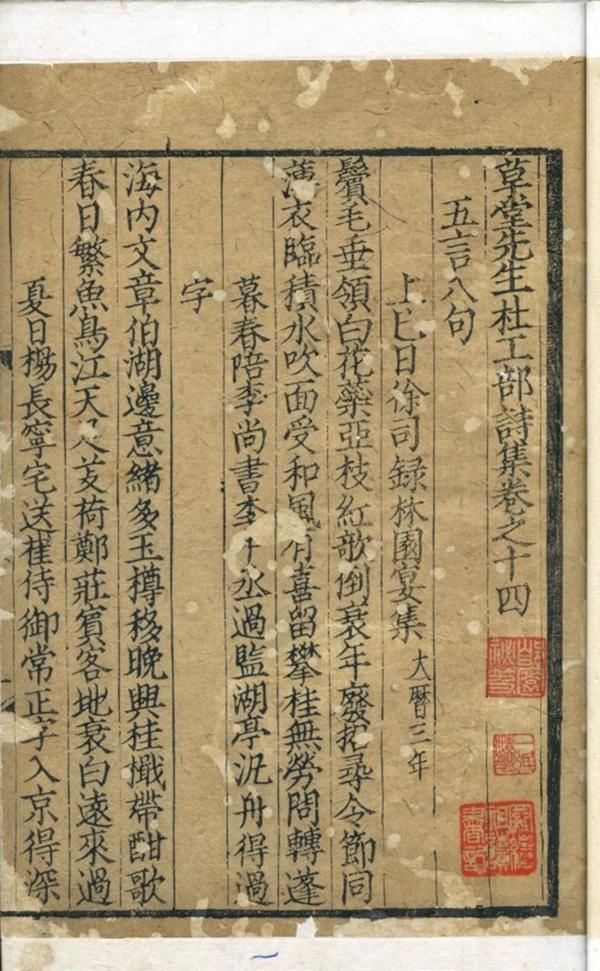 草堂先生杜工部詩集卷之十四
五言八句
上巳日徐司録林園宴集 大暦三年
鬢毛垂領白花蘂亞枝紅歌倒衰年廢招尋令節同
薄衣臨積水吹面受和風有喜留攀桂無勞問轉蓬
暮春陪李尚書李中丞過監湖亭汎舟得過
字
海内文章伯湖邊意緒多玉樽移晚興桂檝帶酣歌
春日繁魚鳥江天足芰荷鄭莊賓客地衰白遠來過
夏日楊長寧宅送崔侍御常正字入京得深